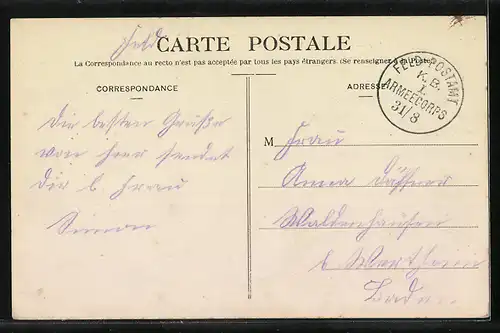 Feld
CARTE POSTALE
La Correspondance au recto n'est pas acceptée par tous les pays étrangers. (Se renseigner à la Poste)
CORRESPONDANCE
ADRESSE
FELD-POSTAMT
K. B.
I.
ARMEECORPS
31/8
Die besten Grüße
von hier sendet
Dir l. Frau
Simon
M Frau
Anna
Waldenhausen
b Wertheim
Baden.